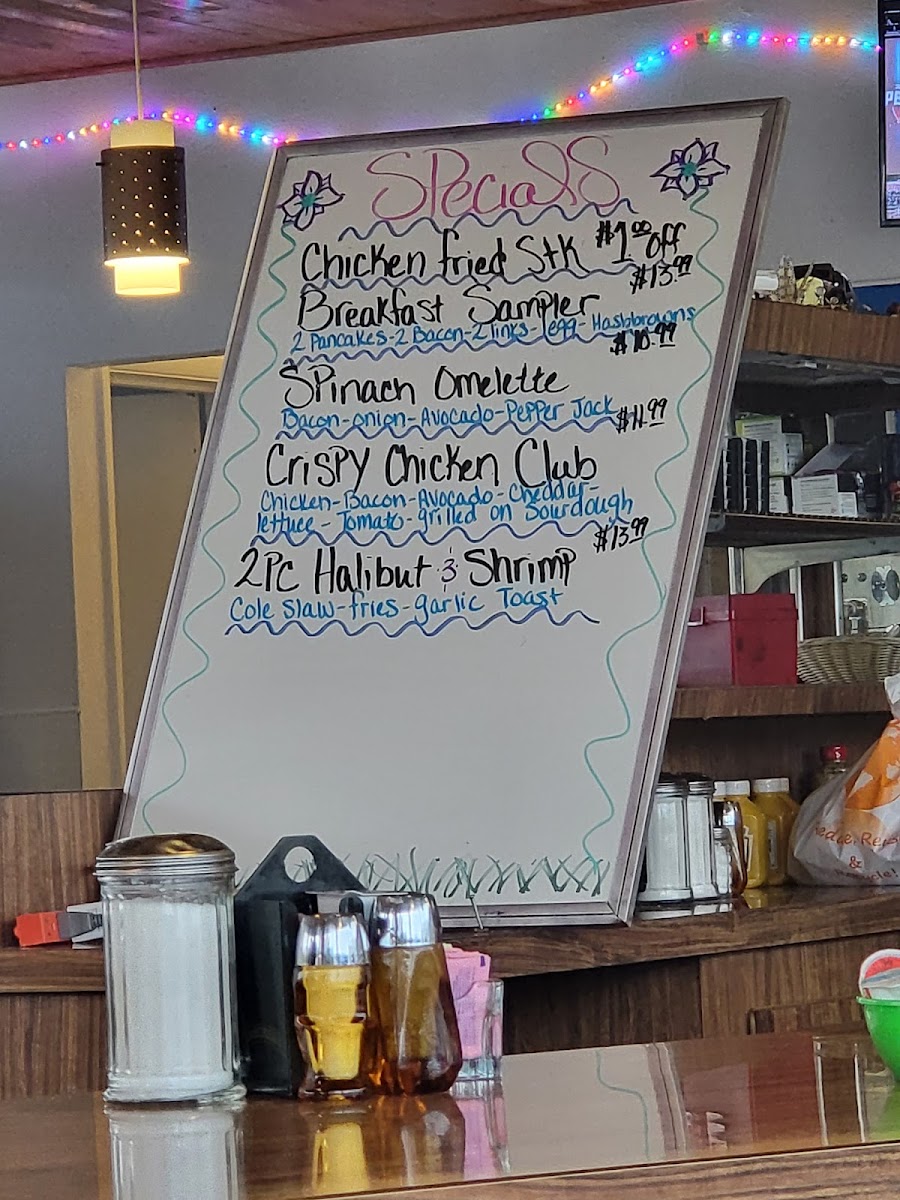 Specials
Chicken fried Stk $1.00 off
Breakfast Sampler $13.99
2 Pancakes-2 Bacon-2 links-1egg-Hashbrowns
Spinach Omelette $10.99
Bacon-onion-Avocado-Pepper Jack
Crispy Chicken Club $11.99
Chicken-Bacon-Avocado-Cheddar-
lettuce-Tomato-grilled on Sourdough
2Pc Halibut & Shrimp $13.99
Cole Slaw-fries-garlic Toast
&